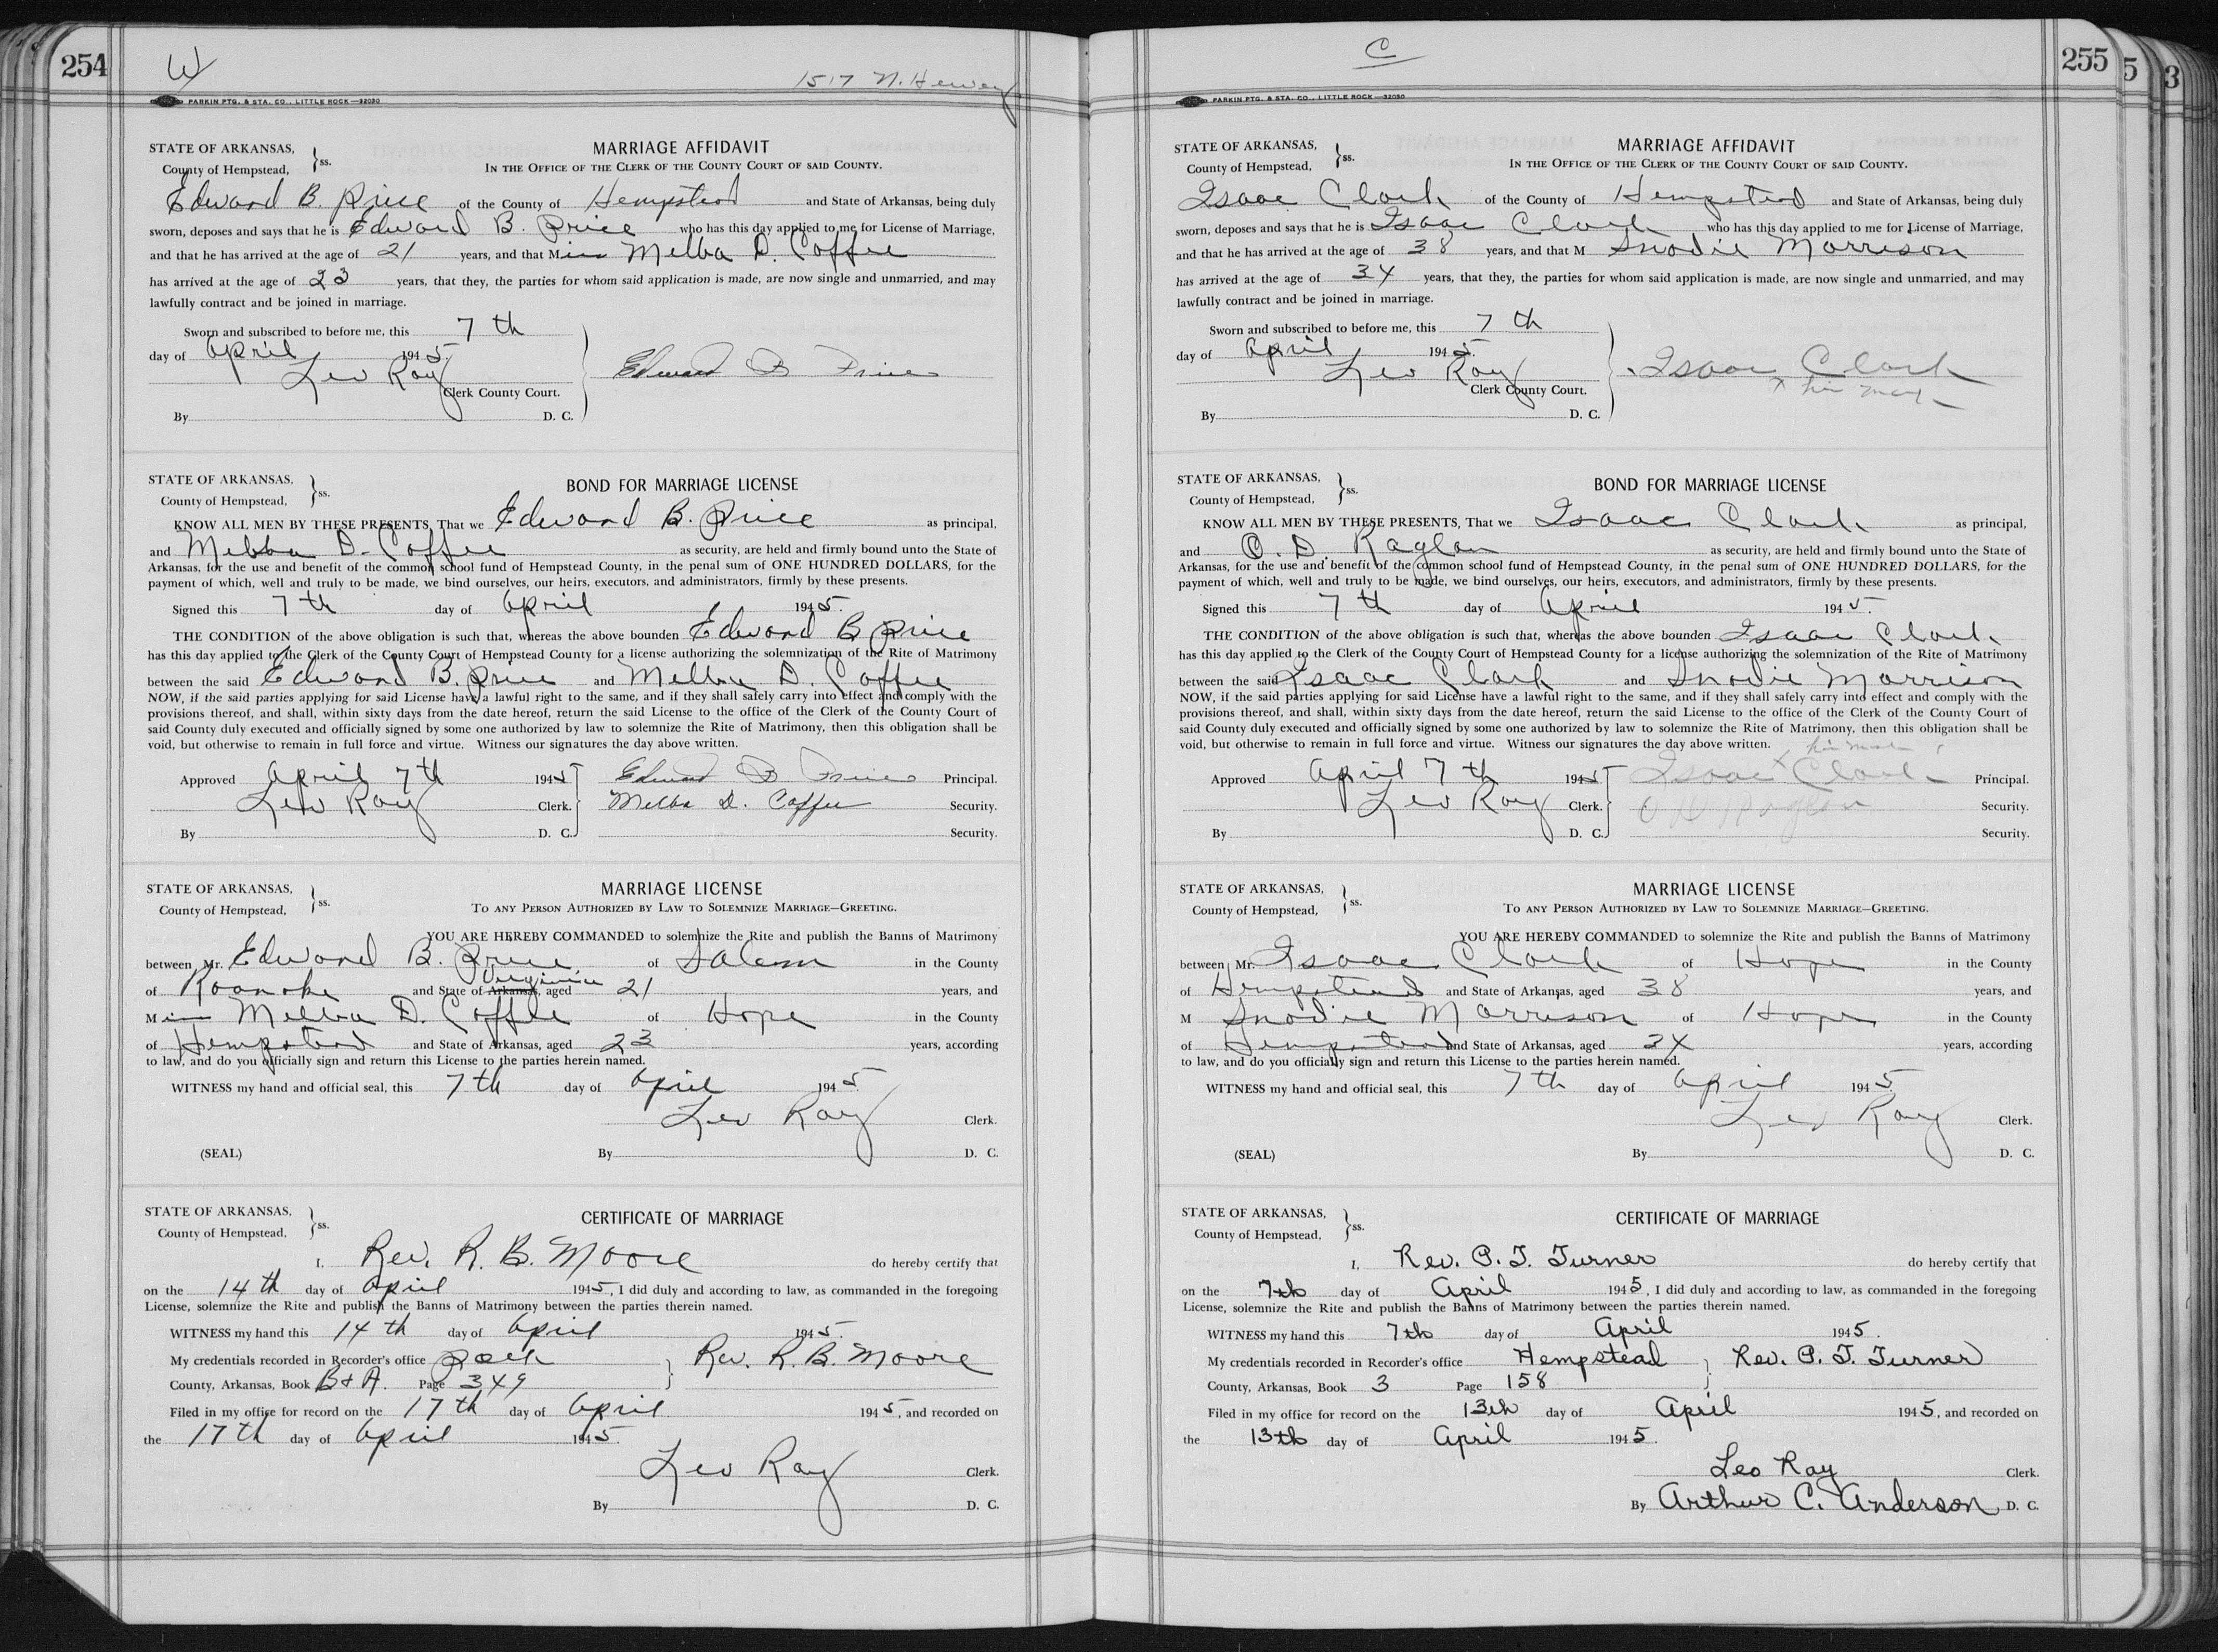 254
W
1517 N. Hervey
PARKIN PTG. & STA. CO., LITTLE ROCK—32030
STATE OF ARKANSAS,
County of Hempstead, } ss.
MARRIAGE AFFIDAVIT
IN THE OFFICE OF THE CLERK OF THE COUNTY COURT OF SAID COUNTY.
Edward B. Price of the County of Hempstead and State of Arkansas, being duly
sworn, deposes and says that he is Edward B. Price who has this day applied to me for License of Marriage,
and that he has arrived at the age of 21 years, and that Miss Melba D. Coffee
has arrived at the age of 23 years, that they, the parties for whom said application is made, are now single and unmarried, and may
lawfully contract and be joined in marriage.
Sworn and subscribed to before me, this 7th
day of April 1945.
Leo Ray
Clerk County Court.
By D. C.
Edward B Price
STATE OF ARKANSAS,
County of Hempstead, } ss.
BOND FOR MARRIAGE LICENSE
KNOW ALL MEN BY THESE PRESENTS, That we Edward B. Price as principal,
and Melba D. Coffee as security, are held and firmly bound unto the State of
Arkansas, for the use and benefit of the common school fund of Hempstead County, in the penal sum of ONE HUNDRED DOLLARS, for the
payment of which, well and truly to be made, we bind ourselves, our heirs, executors, and administrators, firmly by these presents.
Signed this 7th day of April 1945.
THE CONDITION of the above obligation is such that, whereas the above bounden Edward B Price
has this day applied to the Clerk of the County Court of Hempstead County for a license authorizing the solemnization of the Rite of Matrimony
between the said Edward B. Price and Melba D. Coffee
NOW, if the said parties applying for said License have a lawful right to the same, and if they shall safely carry into effect and comply with the
provisions thereof, and shall, within sixty days from the date hereof, return the said License to the office of the Clerk of the County Court of
said County duly executed and officially signed by some one authorized by law to solemnize the Rite of Matrimony, then this obligation shall be
void, but otherwise to remain in full force and virtue. Witness our signatures the day above written.
Approved April 7th 1945 Edward B Price Principal.
Leo Ray Clerk. Melba D. Coffee Security.
By D. C. Security.
STATE OF ARKANSAS,
County of Hempstead, } ss.
MARRIAGE LICENSE
TO ANY PERSON AUTHORIZED BY LAW TO SOLEMNIZE MARRIAGE—GREETING.
YOU ARE HEREBY COMMANDED to solemnize the Rite and publish the Banns of Matrimony
between Mr. Edward B. Price of Salem in the County
of Roanoke and State of Arkansas, Virginia aged 21 years, and
Miss Melba D. Coffee of Hope in the County
of Hempstead and State of Arkansas, aged 23 years, according
to law, and do you officially sign and return this License to the parties herein named.
WITNESS my hand and official seal, this 7th day of April 1945
Leo Ray Clerk.
(SEAL) By D. C.
STATE OF ARKANSAS,
County of Hempstead, } ss.
CERTIFICATE OF MARRIAGE
I, Rev. R. B. Moore do hereby certify that
on the 14th day of April 1945, I did duly and according to law, as commanded in the foregoing
License, solemnize the Rite and publish the Banns of Matrimony between the parties therein named.
WITNESS my hand this 14th day of April 1945.
My credentials recorded in Recorder's office Polk } Rev. R. B. Moore
County, Arkansas, Book B & A. Page 349
Filed in my office for record on the 17th day of April 1945, and recorded on
the 17th day of April 1945.
Leo Ray Clerk.
By D. C.
255
5
3
C
PARKIN PTG. & STA. CO., LITTLE ROCK—32030
STATE OF ARKANSAS,
County of Hempstead, } ss.
MARRIAGE AFFIDAVIT
IN THE OFFICE OF THE CLERK OF THE COUNTY COURT OF SAID COUNTY.
Isaac Clark of the County of Hempstead and State of Arkansas, being duly
sworn, deposes and says that he is Isaac Clark who has this day applied to me for License of Marriage,
and that he has arrived at the age of 38 years, and that M Snodie Morrison
has arrived at the age of 34 years, that they, the parties for whom said application is made, are now single and unmarried, and may
lawfully contract and be joined in marriage.
Sworn and subscribed to before me, this 7th
day of April 1945.
Leo Ray
Clerk County Court.
By D. C.
Isaac Clark
x his mark
STATE OF ARKANSAS,
County of Hempstead, } ss.
BOND FOR MARRIAGE LICENSE
KNOW ALL MEN BY THESE PRESENTS, That we Isaac Clark as principal,
and O. D. Raglan as security, are held and firmly bound unto the State of
Arkansas, for the use and benefit of the common school fund of Hempstead County, in the penal sum of ONE HUNDRED DOLLARS, for the
payment of which, well and truly to be made, we bind ourselves, our heirs, executors, and administrators, firmly by these presents.
Signed this 7th day of April 1945.
THE CONDITION of the above obligation is such that, whereas the above bounden Isaac Clark
has this day applied to the Clerk of the County Court of Hempstead County for a license authorizing the solemnization of the Rite of Matrimony
between the said Isaac Clark and Snodie Morrison
NOW, if the said parties applying for said License have a lawful right to the same, and if they shall safely carry into effect and comply with the
provisions thereof, and shall, within sixty days from the date hereof, return the said License to the office of the Clerk of the County Court of
said County duly executed and officially signed by some one authorized by law to solemnize the Rite of Matrimony, then this obligation shall be
void, but otherwise to remain in full force and virtue. Witness our signatures the day above written.
x his mark
Approved April 7th 1945 Isaac Clark Principal.
Leo Ray Clerk. O D Raglan Security.
By D. C. Security.
STATE OF ARKANSAS,
County of Hempstead, } ss.
MARRIAGE LICENSE
TO ANY PERSON AUTHORIZED BY LAW TO SOLEMNIZE MARRIAGE—GREETING.
YOU ARE HEREBY COMMANDED to solemnize the Rite and publish the Banns of Matrimony
between Mr. Isaac Clark of Hope in the County
of Hempstead and State of Arkansas, aged 38 years, and
M Snodie Morrison of Hope in the County
of Hempstead and State of Arkansas, aged 34 years, according
to law, and do you officially sign and return this License to the parties herein named.
WITNESS my hand and official seal, this 7th day of April 1945
Leo Ray Clerk.
(SEAL) By D. C.
STATE OF ARKANSAS,
County of Hempstead, } ss.
CERTIFICATE OF MARRIAGE
I, Rev. P. T. Turner do hereby certify that
on the 7th day of April 1945, I did duly and according to law, as commanded in the foregoing
License, solemnize the Rite and publish the Banns of Matrimony between the parties therein named.
WITNESS my hand this 7th day of April 1945.
My credentials recorded in Recorder's office Hempstead } Rev. P. T. Turner
County, Arkansas, Book 3 Page 158
Filed in my office for record on the 13th day of April 1945, and recorded on
the 13th day of April 1945.
Leo Ray Clerk.
By Arthur C. Anderson D. C.